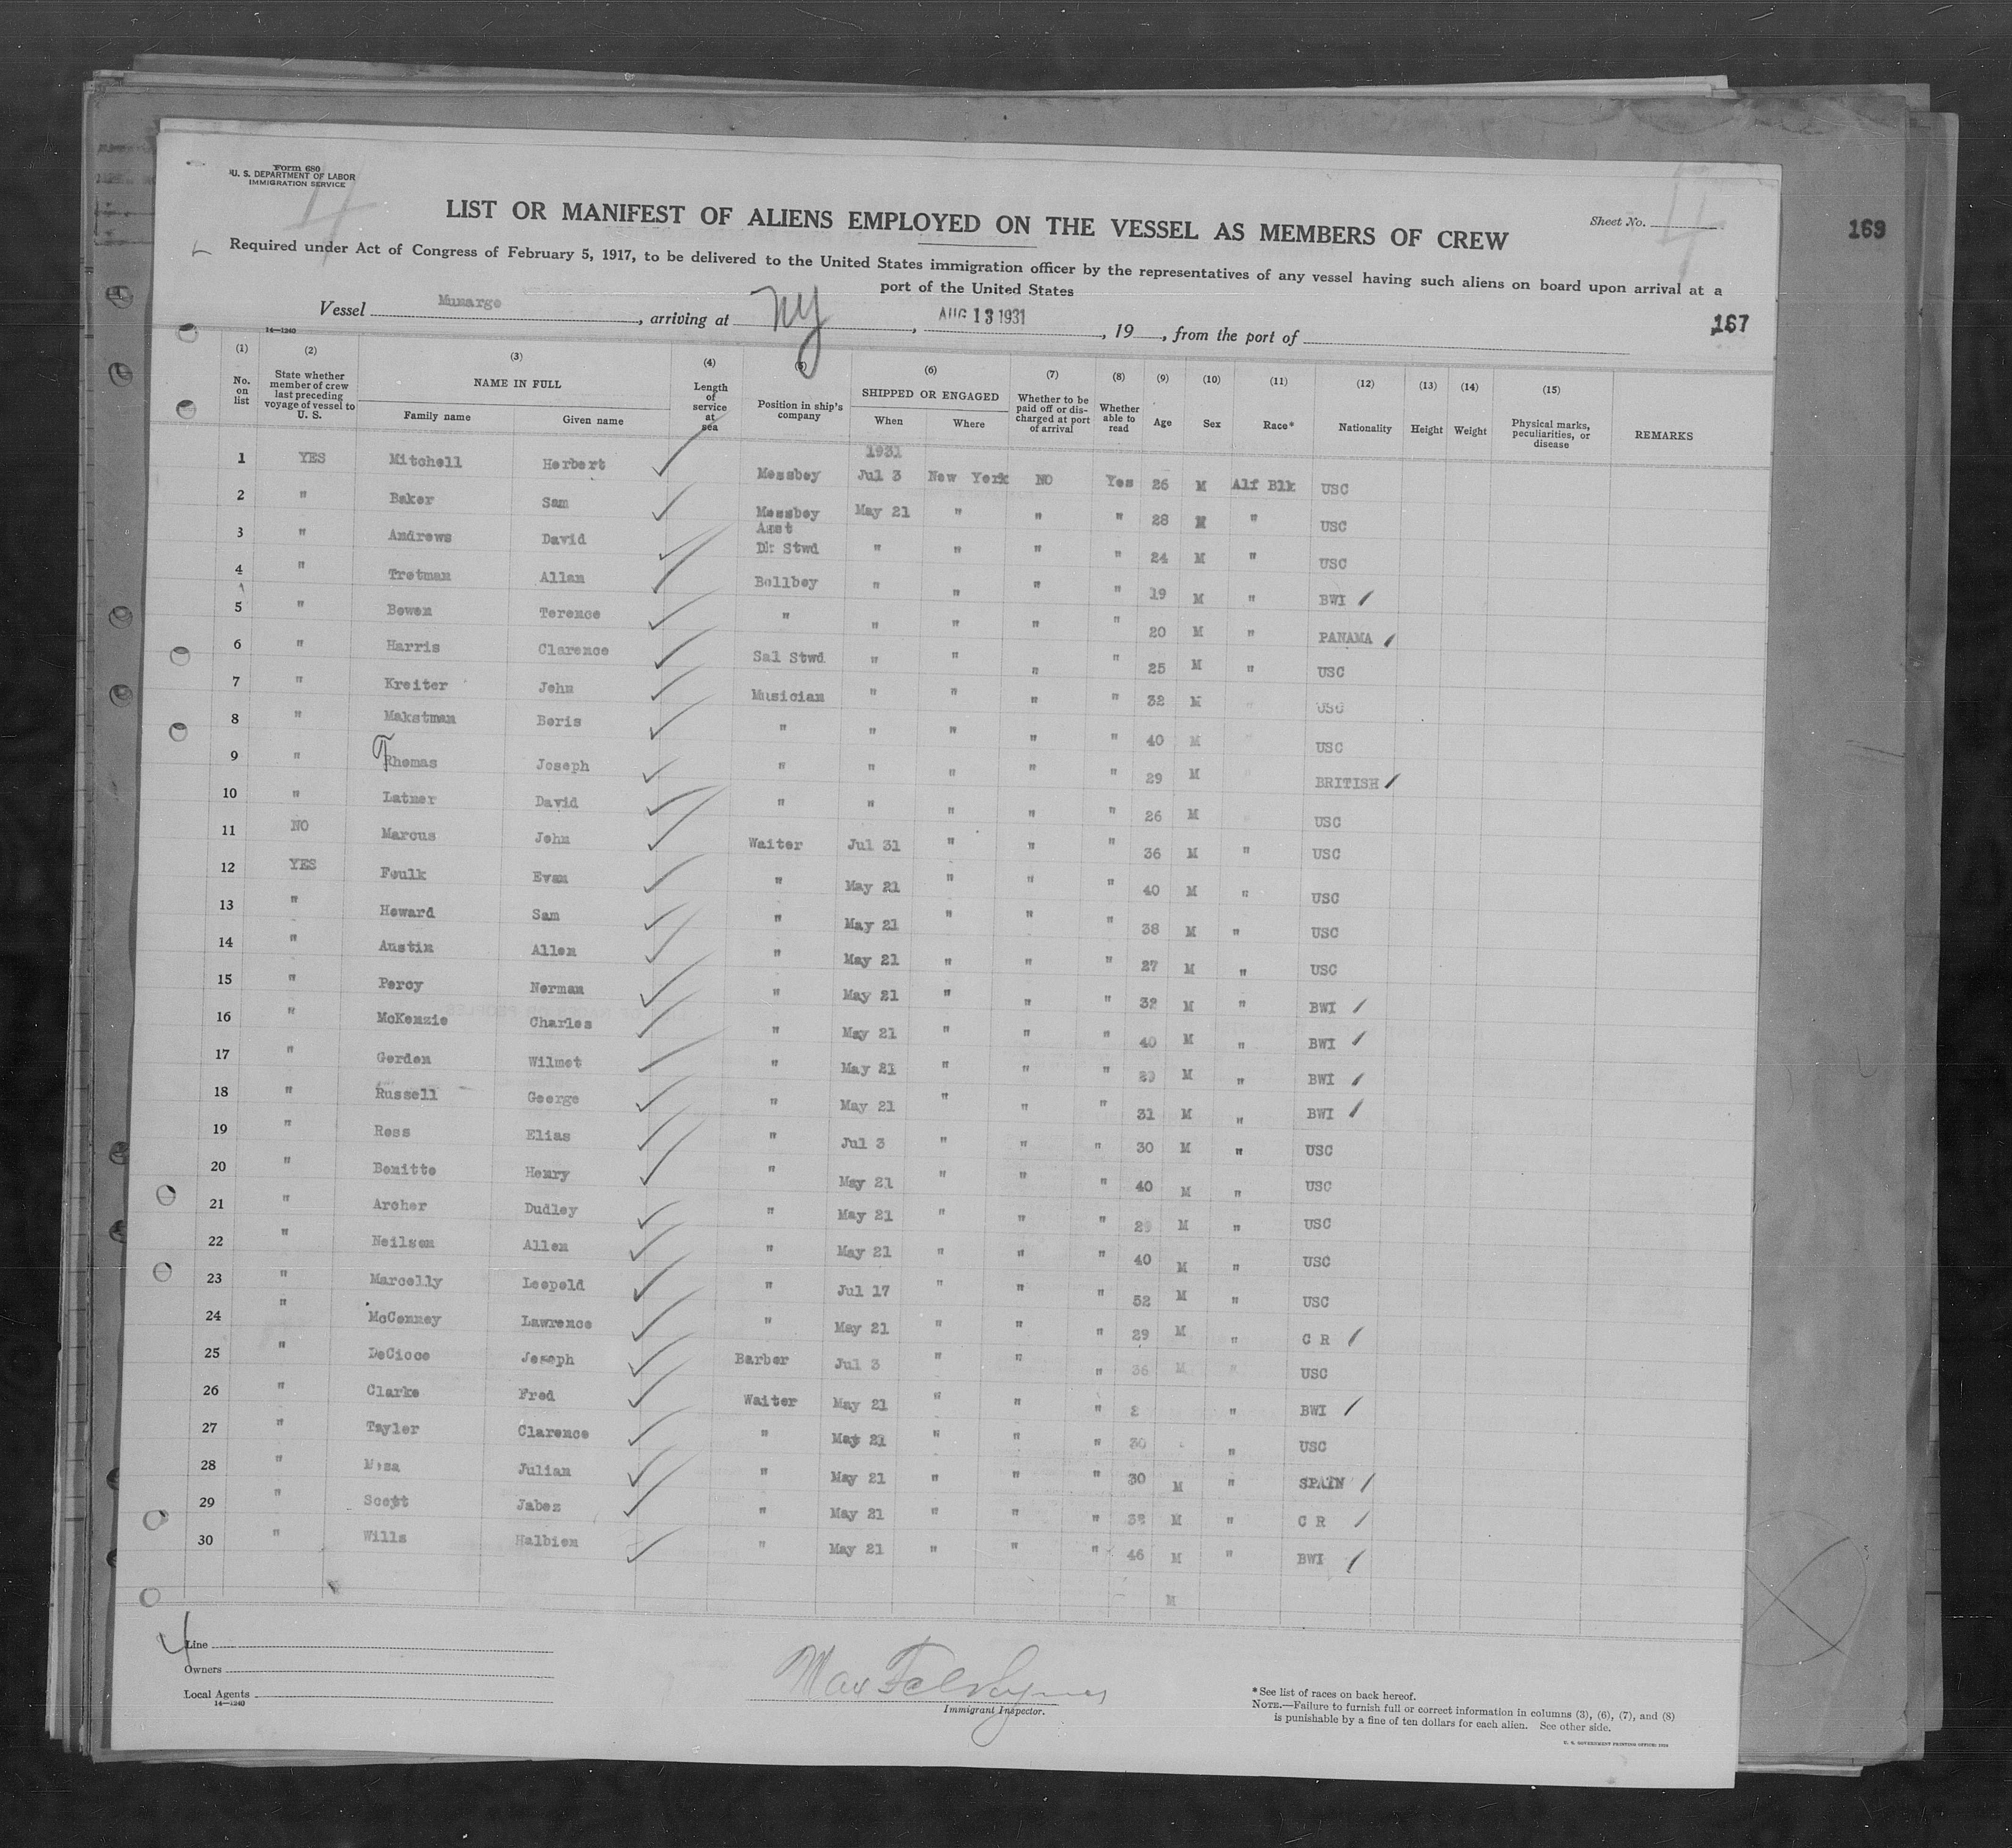 Form 680
U. S. DEPARTMENT OF LABOR
IMMIGRATION SERVICE
4
LIST OR MANIFEST OF ALIENS EMPLOYED ON THE VESSEL AS MEMBERS OF CREW
Sheet No. 4
169
Required under Act of Congress of February 5, 1917, to be delivered to the United States immigration officer by the representatives of any vessel having such aliens on board upon arrival at a
port of the United States
Vessel Munargo, arriving at NY, AUG 13 1931, 19 , from the port of
167
14—1240
(1) (2) (3) (4) (5) (6) (7) (8) (9) (10) (11) (12) (13) (14) (15)
No. on list State whether member of crew last preceding voyage of vessel to U. S. NAME IN FULL Family name Given name Length of service at sea Position in ship's company SHIPPED OR ENGAGED When Where Whether to be paid off or discharged at port of arrival Whether able to read Age Sex Race* Nationality Height Weight Physical marks, peculiarities, or disease REMARKS
1931
1 YES Mitchell Herbert Messboy Jul 3 New York NO Yes 26 M Alf Blk USC
2 " Baker Sam Messboy May 21 " " " 28 M " USC
3 " Andrews David Asst Dk Stwd " " " " 24 M " USC
4 " Trotman Allan Bellboy " " " " 19 M " BWI
5 " Bowen Terence " " " " " 20 M " PANAMA
6 " Harris Clarence Sal Stwd " " " " 25 M " USC
7 " Kreiter John Musician " " " " 32 M " USC
8 " Makstman Boris " " " " " 40 M " USC
9 " Thomas Joseph " " " " " 29 M " BRITISH
10 " Latner David " " " " " 26 M USC
11 NO Marcus John Waiter Jul 31 " " " 36 M " USC
12 YES Foulk Evan " May 21 " " " 40 M " USC
13 " Howard Sam " May 21 " " " 38 M " USC
14 " Austin Allen " May 21 " " " 27 M " USC
15 " Percy Norman " May 21 " " " 32 M " BWI
16 " McKenzie Charles " May 21 " " " 40 M " BWI
17 " Gordon Wilmot " May 21 " " " 29 M " BWI
18 " Russell George " May 21 " " " 31 M " BWI
19 " Ross Elias " Jul 3 " " " 30 M " USC
20 " Bonitto Henry " May 21 " " " 40 M " USC
21 " Archer Dudley " May 21 " " " 29 M " USC
22 " Neilson Allen " May 21 " " " 40 M " USC
23 " Marcelly Leopold " Jul 17 " " " 52 M " USC
24 " McConney Lawrence " May 21 " " " 29 M " C R
25 " DeCicco Joseph Barber Jul 3 " " " 36 M " USC
26 " Clarke Fred Waiter May 21 " " " 2 " BWI
27 " Tayler Clarence " May 21 " " " 30 " USC
28 " Julian " May 21 " " " 30 M " SPAIN
29 " Scott Jabez " May 21 " " " 38 M " C R
30 " Wills Halbien " May 21 " " " 46 M " BWI
M
Line
Owners
Local Agents
14—1240
Max
Immigrant Inspector.
* See list of races on back hereof.
NOTE.—Failure to furnish full or correct information in columns (3), (6), (7), and (8)
is punishable by a fine of ten dollars for each alien. See other side.